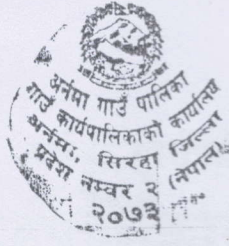 अर्नमा गाउँ पालिका
गाउँ कार्यपालिकाको कार्यालय
अर्नमा, सिरहा जिल्ला
प्रदेश नम्बर २ (नेपाल)
२०७३